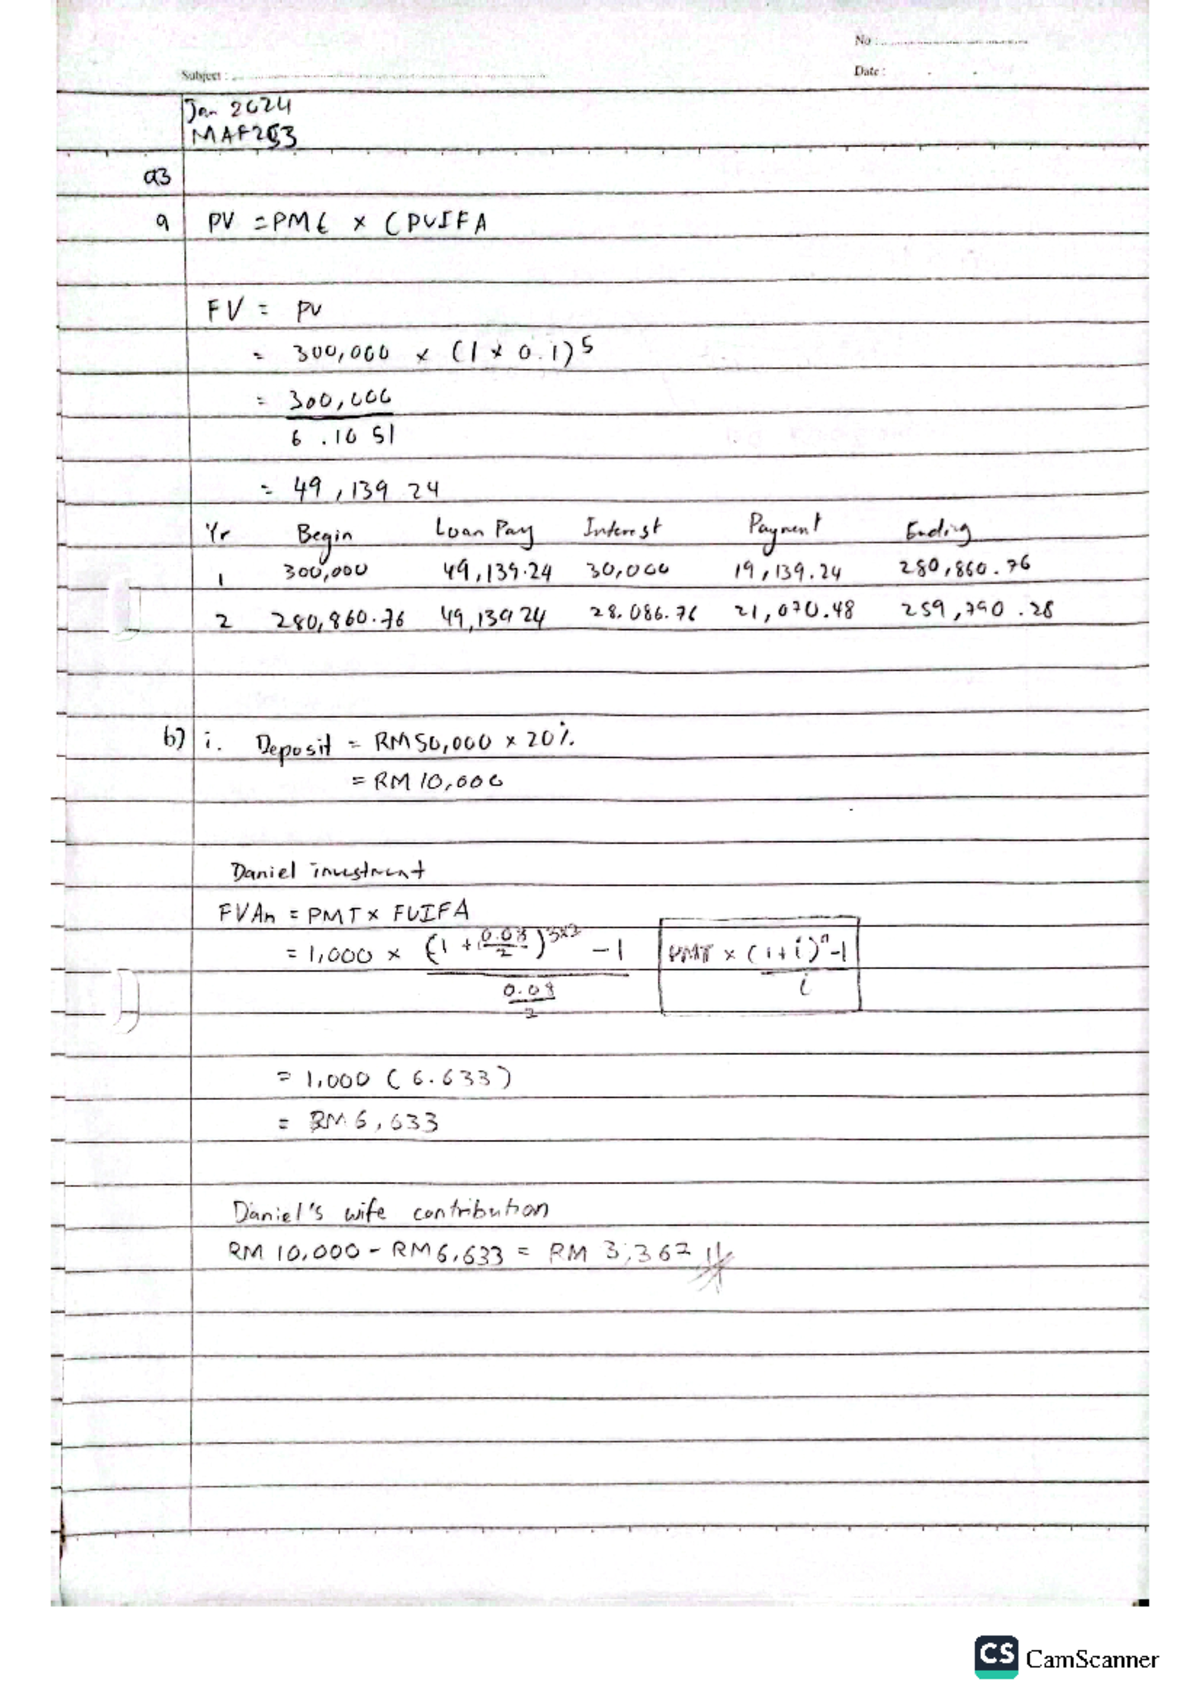 No :
Subject :
Date :
Jan 2024
MAF253
Q3
a PV = PMt × (PVIFA
FV = PV
= 300,000 × (1 × 0.1)5
= 300,000
6.1051
= 49,139 24
Yr Begin Loan Pay Interest Payment Ending
1 300,000 49,139.24 30,000 19,139.24 280,860.76
2 280,860.76 49,139 24 28.086.76 21,070.48 259,790.28
b) i. Deposit = RM50,000 × 20%
= RM 10,000
Daniel investment
FVAn = PMT × FVIFA
= 1,000 × (1 + 0.08/2)3×2 - 1
0.08
2
PMT × (1+i)n-1
i
= 1,000 (6.633)
= RM 6,633
Daniel's wife contribution
RM 10,000 - RM6,633 = RM 3,367
CS CamScanner